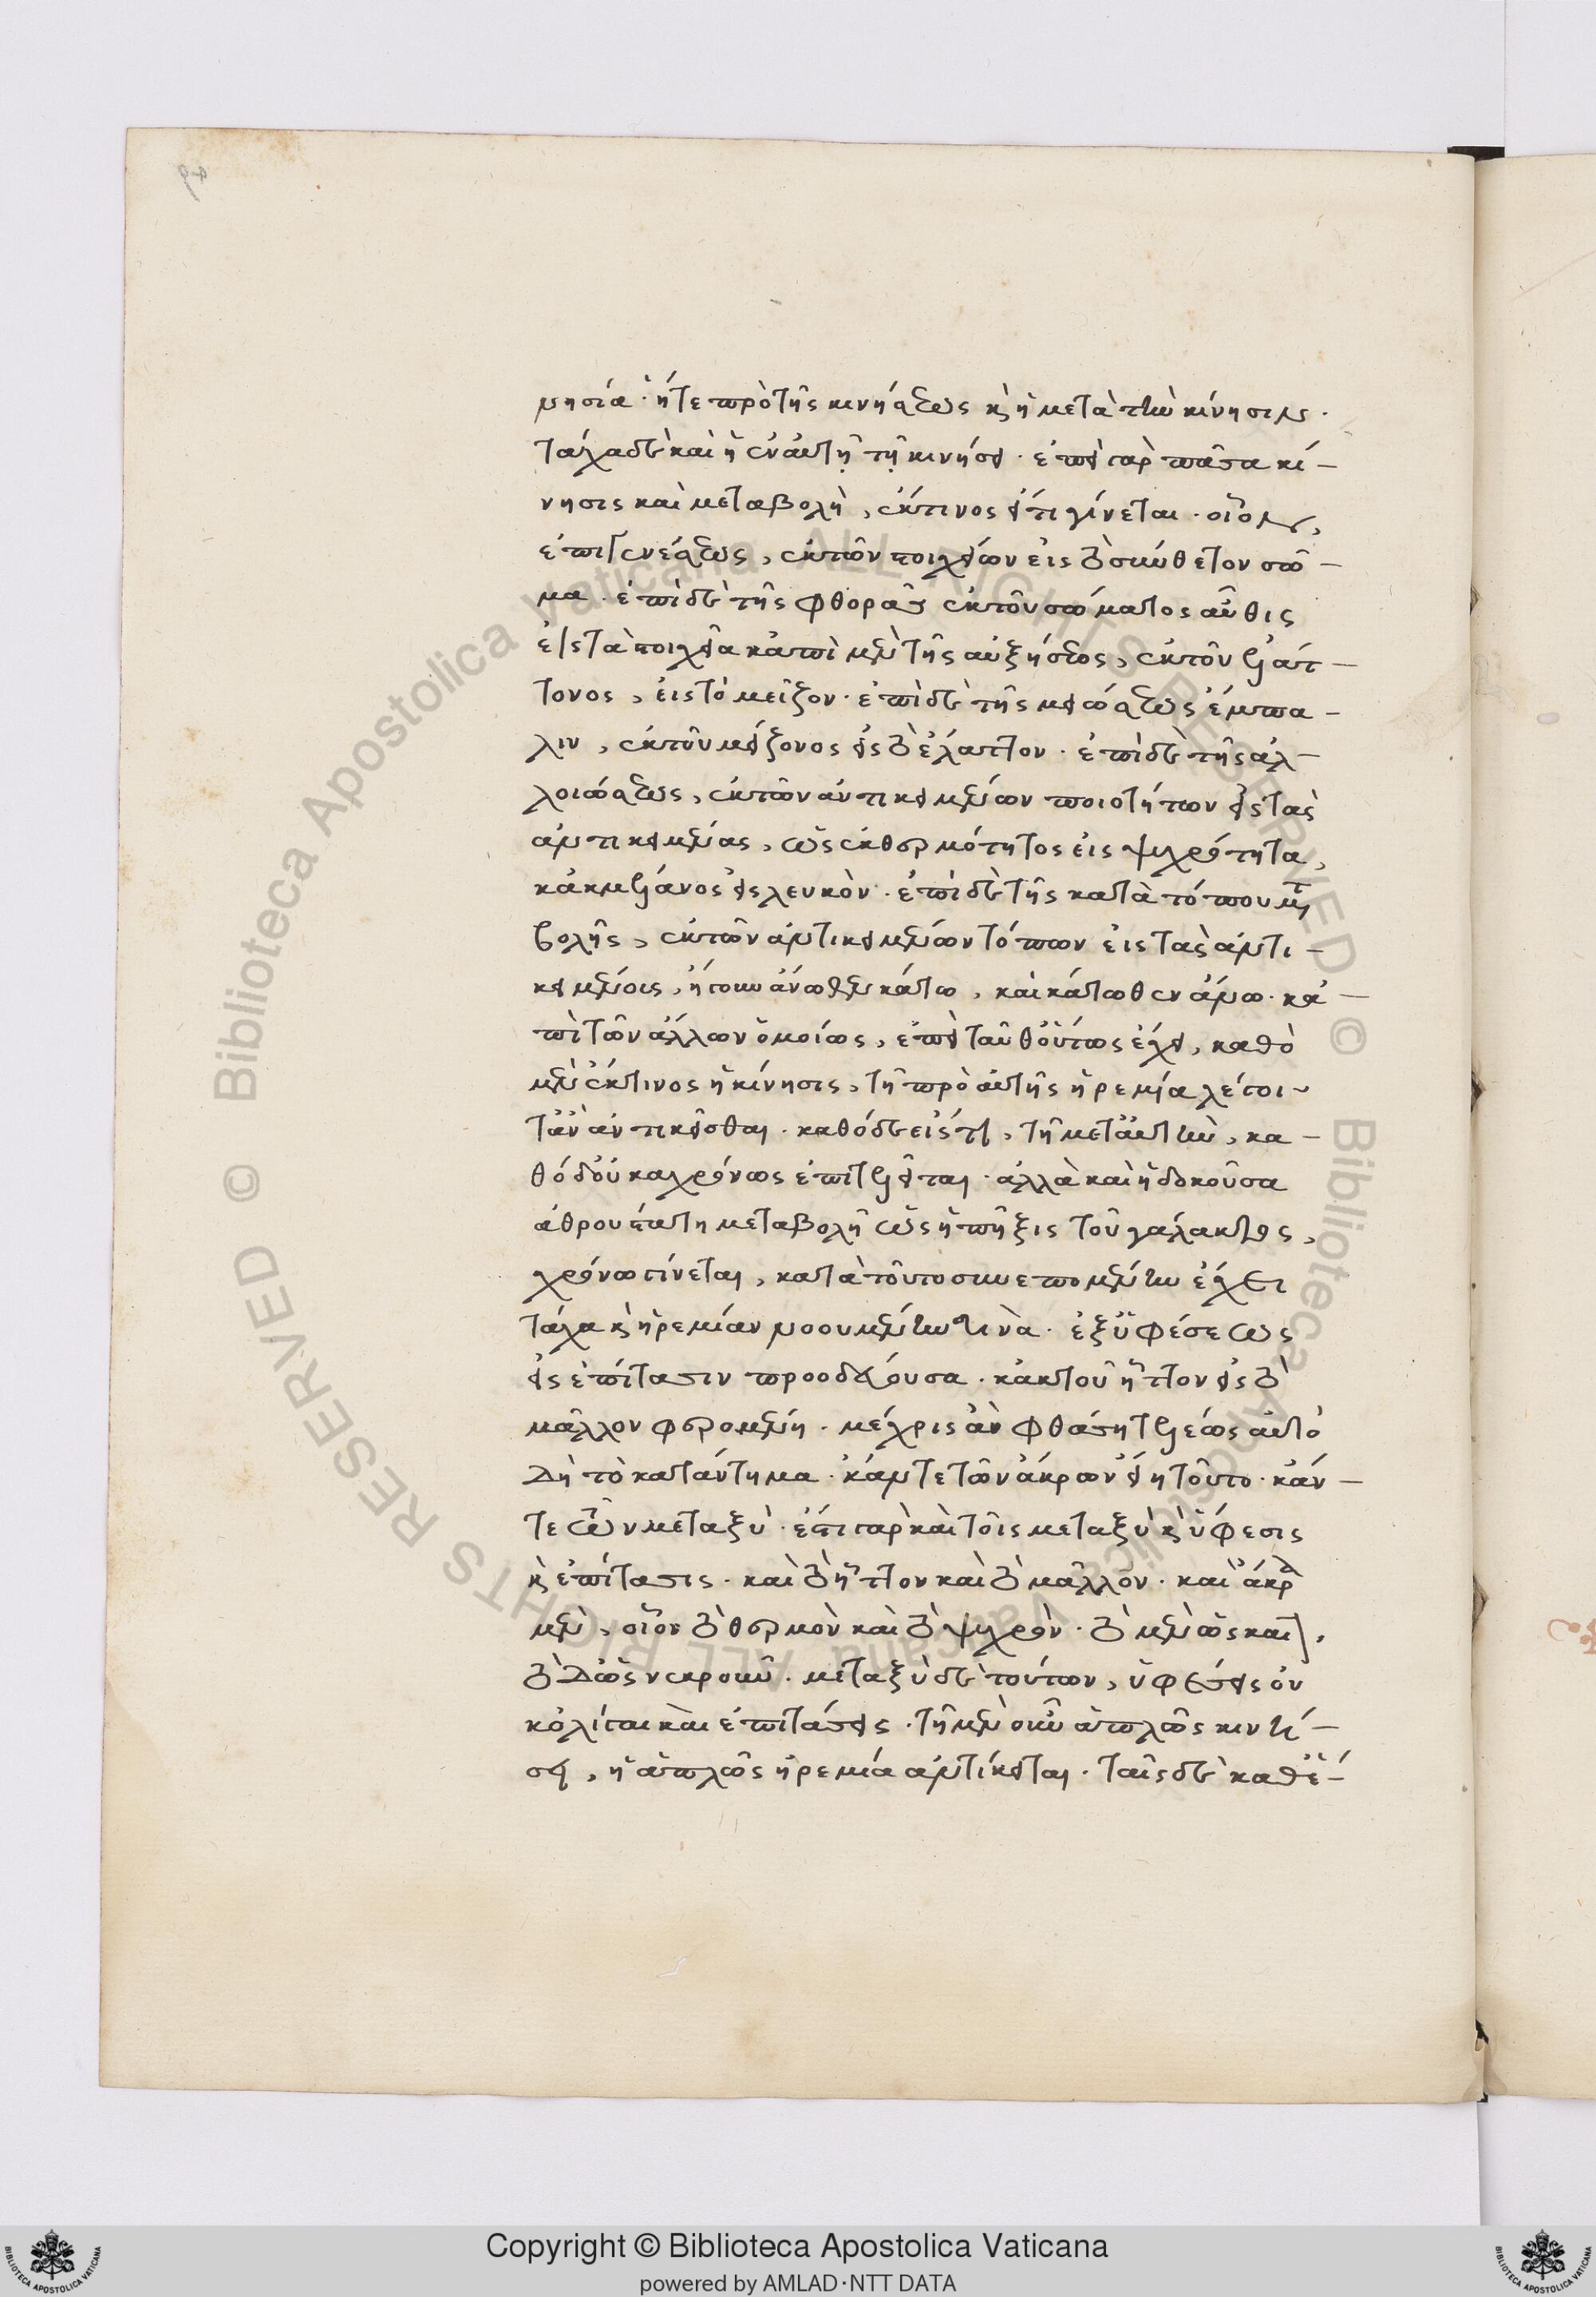 μησία· ἥτε πρὸ τῆς κινήσεως κ(αὶ) ἡ μετὰ τὴν κίνησιν.
τάχα δὲ καὶ ἡ ἐν αὐτῇ τῇ κινήσει. ἐπεὶ γὰρ πᾶσα κί-
νησις καὶ μεταβολὴ, ἔκ τινος εἴς τι γίνεται. οἷον,
ἐπὶ γενέσεως, ἐκ τῶν στοιχείων εἰς τὸ σύνθετον σῶ-
μα. ἐπὶ δὲ τῆς φθορᾶς ἐκ τοῦ σώματος αὖθις
εἰς τὰ στοιχεῖα κἀπὶ μὲν τῆς αὐξήσεως, ἐκ τοῦ ἐλάτ-
τονος, εἰς τὸ μεῖζον. ἐπὶ δὲ τῆς μειώσεως ἔμπα-
λιν, ἐκ τοῦ μείζονος εἰς τὸ ἔλαττον. ἐπὶ δὲ τῆς ἀλ-
λοιώσεως, ἐκ τῶν ἀντικειμένων ποιοτήτων εἰς τὰς
ἀντικειμένας, ὡς ἐκ θερμότητος εἰς ψυχρότητα,
κἀκ μέλανος εἰς λευκὸν. ἐπὶ δὲ τῆς κατὰ τόπον μετα
βολῆς, ἐκ τῶν ἀντικειμένων τόπων εἰς τὰς ἀντι-
κειμένοις, ἤγουν ἄνωθεν κάτω, καὶ κάτωθεν ἄνω. κἀ-
πὶ τῶν ἄλλων ὁμοίως, ἐπεὶ ταῦθ' οὕτως ἔχει, καθὸ
μὲν ἔκ τινος ἡ κίνησις, τῇ πρὸ αὐτῆς ἠρεμία λέγοι-
τ' ἂν ἀντικεῖσθαι. καθὸ δὲ εἴς τι, τῇ μετ' αὐτὴν, κα-
θὸ δ' οὐκ ἀχρόνως ἐπιτελεῖται. ἀλλὰ καὶ ἡ δοκοῦσα
ἀθρουστάτη μεταβολὴ ὡς ἡ πῆξις τοῦ γάλακτος,
χρόνω γίνεται, κατὰ τοῦτο συνεπομένην ἔχει
τάχα κ(αὶ) ἠρεμίαν νοουμένην τινὰ. ἐξ ὑφέσεως
εἰς ἐπίτασιν προοδεύουσα. κἀκ τοῦ ἧττον εἰς τὸ
μᾶλλον φερομένη. μέχρις ἂν φθάσῃ τελέως αὐτὸ
δὴ τὸ κατάντημα. κἄν τε τῶν ἄκρων εἴη τοῦτο. κἄν-
τε τῶν μεταξὺ. ἔστι γὰρ καὶ τοῖς μεταξὺ κ(αὶ) ὕφεσις
κ(αὶ) ἐπίτασις. καὶ τὸ ἧττον καὶ τὸ μᾶλλον. καὶ ἄκρα
μὲν, οἷον τὸ θερμὸν καὶ τὸ ψυχρὸν. τὸ μὲν ὡς καῖον,
τὸ δ' ὡς νεκροῦν. μεταξὺ δὲ τούτων, ὑφέσεις οὐ
κ' ὀλίγαι καὶ ἐπιτάσεις. τῇ μὲν οὖν ἁπλῶς κινή-
σει, ἡ ἁπλῶς ἠρεμία ἀντίκειται. ταῖς δὲ καθ' ἕ-